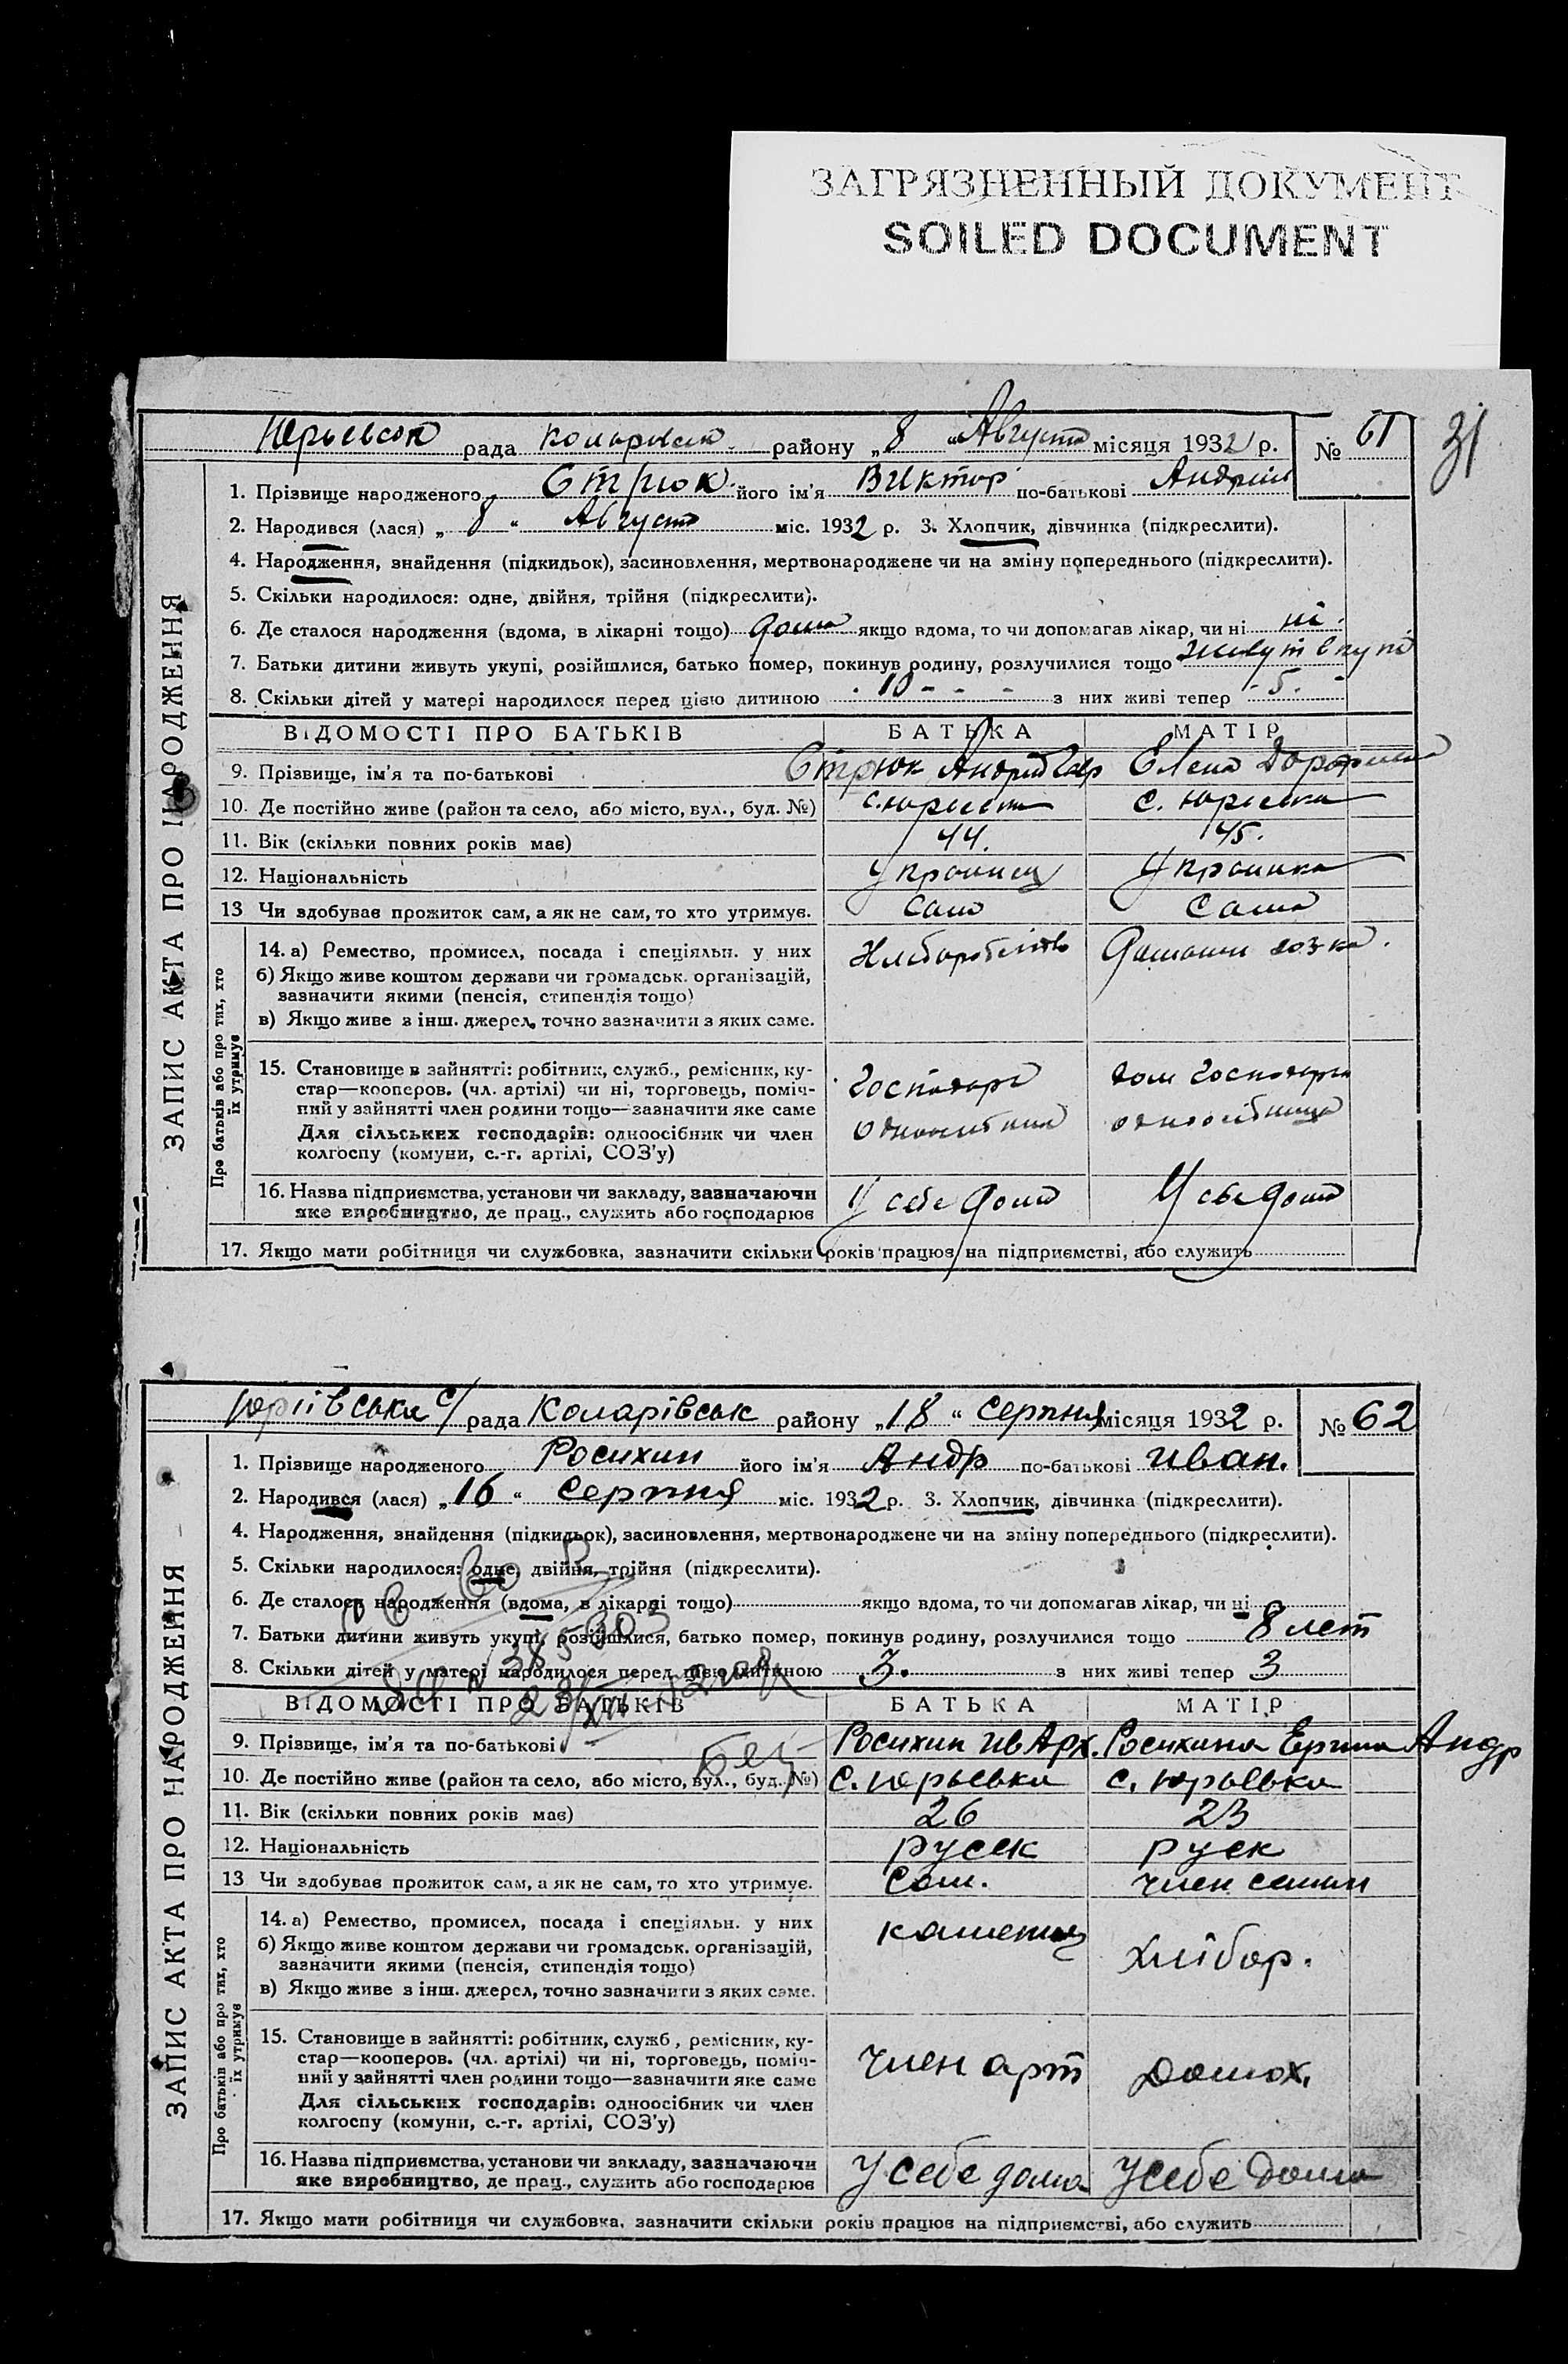 ЗАГРЯЗНЕННЫЙ ДОКУМЕНТ
SOILED DOCUMENT
31
рада района району „8“ Август місяця 1932 р. № 61
ЗАПИС АКТА ПРО НАРОДЖЕННЯ
1. Прізвище народженого Стрюк його ім'я Виктор по-батькові Андрій
2. Народився (лася) „8“ Август міс. 1932 р. 3. Хлопчик, дівчинка (підкреслити).
4. Народження, знайдення (підкидьок), засиновлення, мертвонароджене чи на зміну попереднього (підкреслити).
5. Скільки народилося: одне, двійня, трійня (підкреслити).
6. Де сталося народження (вдома, в лікарні тощо) дома якщо вдома, то чи допомагав лікар, чи ні ні
7. Батьки дитини живуть укупі, розійшлися, батько помер, покинув родину, розлучилися тощо живут вкупі
8. Скільки дітей у матері народилося перед цією дитиною 10 з них живі тепер 5
ВІДОМОСТІ ПРО БАТЬКІВ БАТЬКА МАТІР
9. Прізвище, ім'я та по-батькові Стрюк Андрій Елена
10. Де постійно живе (район та село, або місто, вул., буд. №) с. с. Юрьевка
11. Вік (скільки повних років має) 44. 45.
12. Національність Украинец Украинка
13 Чи здобуває прожиток сам, а як не сам, то хто утримує. Сам Сама
Про батьків або про тих, хто їх утримує
14. а) Ремество, промисел, посада і спеціяльн. у них
б) Якщо живе коштом держави чи громадськ. організацій,
зазначити якими (пенсія, стипендія тощо)
в) Якщо живе з інш. джерел, точно зазначити з яких саме.
15. Становище в зайнятті: робітник, служб., ремісник, ку-
стар—кооперов. (чл. артілі) чи ні, торговець, поміч-
ний у зайнятті член родини тощо—зазначити яке саме
Для сільських господарів: одноосібник чи член
колгоспу (комуни, с.-г. артілі, СОЗ'у)
Господарь дом господарка
одноосібниця
16. Назва підприємства, установи чи закладу, зазначаючи
яке виробництво, де прац., служить або господарює
У себе дома У себе дома
17. Якщо мати робітниця чи службовка, зазначити скільки років працює на підприємстві, або служить
Юріївська с/рада Комарівськ району „18“ серпня місяця 1932 р. № 62
ЗАПИС АКТА ПРО НАРОДЖЕННЯ
1. Прізвище народженого Росихин його ім'я Андр по-батькові Иван.
2. Народився (лася) „16“ серпня міс. 1932 р. 3. Хлопчик, дівчинка (підкреслити).
4. Народження, знайдення (підкидьок), засиновлення, мертвонароджене чи на зміну попереднього (підкреслити).
5. Скільки народилося: одне, двійня, трійня (підкреслити).
6. Де сталося народження (вдома, в лікарні тощо) якщо вдома, то чи допомагав лікар, чи ні
7. Батьки дитини живуть укупі, розійшлися, батько помер, покинув родину, розлучилися тощо 8 лет
8. Скільки дітей у матері народилося перед цією дитиною 3. з них живі тепер 3
ВІДОМОСТІ ПРО БАТЬКІВ БАТЬКА МАТІР
9. Прізвище, ім'я та по-батькові Росихин Ив Арх. Росихина Андр
10. Де постійно живе (район та село, або місто, вул., буд. №) с. Юрьевка с. Юрьевка
11. Вік (скільки повних років має) 26 23
12. Національність русск руск
13 Чи здобуває прожиток сам, а як не сам, то хто утримує. Сам. член семьи
Про батьків або про тих, хто їх утримує
14. а) Ремество, промисел, посада і спеціяльн. у них
б) Якщо живе коштом держави чи громадськ. організацій,
зазначити якими (пенсія, стипендія тощо)
в) Якщо живе з інш. джерел, точно зазначити з яких саме.
каменщ хлібор.
15. Становище в зайнятті: робітник, служб., ремісник, ку-
стар—кооперов. (чл. артілі) чи ні, торговець, поміч-
ний у зайнятті член родини тощо—зазначити яке саме
Для сільських господарів: одноосібник чи член
колгоспу (комуни, с.-г. артілі, СОЗ'у)
член арт домох.
16. Назва підприємства, установи чи закладу, зазначаючи
яке виробництво, де прац., служить або господарює
У себе дома У себе дома
17. Якщо мати робітниця чи службовка, зазначити скільки років працює на підприємстві, або служить